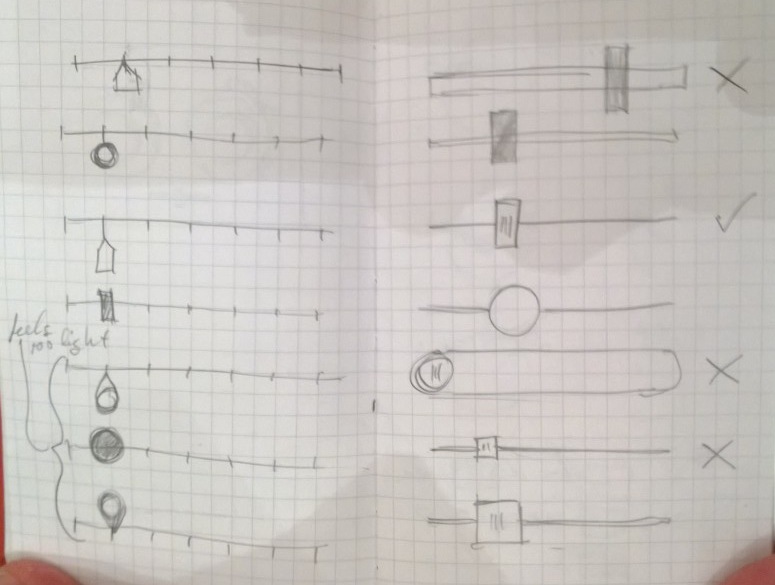 feels
too light